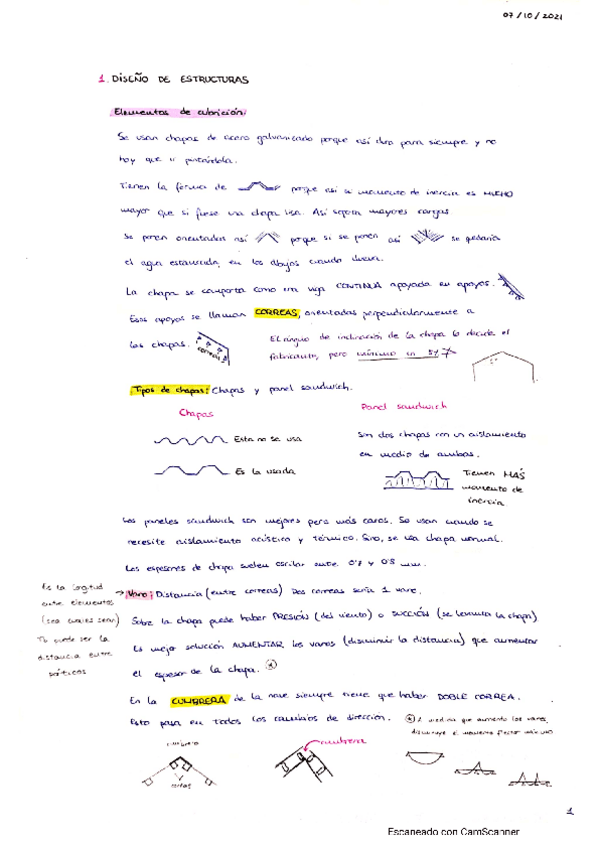 07/10/2021
1. DISEÑO DE ESTRUCTURAS
Elementos de cubrición:
Se usan chapas de acero galvanizado porque así dura para siempre y no
hay que ir pintándola.
Tienen la forma de porque así su momento de inercia es MUCHO
mayor que si fuese una chapa lisa. Así soporta mayores cargas.
Se ponen orientadas así porque si se ponen así se quedaría
el agua estancada, en los dibujos cuando llueva.
La chapa se comporta como una viga CONTINUA apoyada en apoyos.
Esos apoyos se llaman CORREAS, orientadas perpendicularmente a
las chapas.
correas
El ángulo de inclinación de la chapa lo decide el
fabricante, pero mínimo un
Tipos de chapas: Chapas y panel sandwich.
Chapas
Esta no se usa
Es la usada
Panel sandwich
Son dos chapas con un aislamiento
en medio de ambas.
Tienen MÁS
momento de
inercia
Los paneles sandwich son mejores pero más caros. Se usan cuando se
necesite aislamiento acústico y térmico. Sino, se usa chapa normal.
Los espesores de chapa suelen oscilar entre 0'7 y 0'8 mm.
Es la longitud
entre elementos
(sea cuales sean)
Tb puede ser la
distancia entre
pórticos
→ Vano: Distancia (entre correas) Dos correas sería 1 vano.
Sobre la chapa puede haber PRESIÓN (del viento) o SUCCIÓN (se levanta la chapa)
Es mejor solución AUMENTAR los vanos (disminuir la distancia) que aumentar
el espesor de la chapa. *
En la CUMBRERA de la nave siempre tiene que haber DOBLE CORREA.
Esto pasa en todos los cambios de dirección.
* A medida que aumento los vanos,
disminuye el momento flector
cumbrera
correas
cumbrera
1
Escaneado con CamScanner